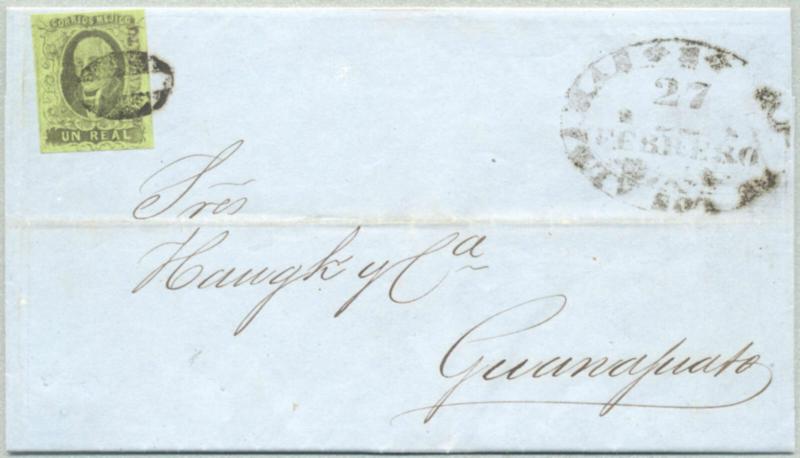 CORREOS MEJICO
UN REAL
27
FEBRERO
Srēs
Haugk y Cª
Guanajuato